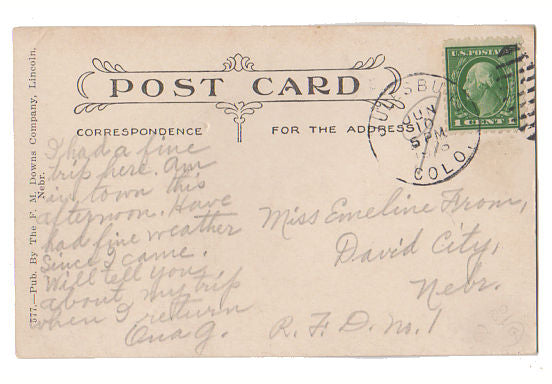 POST CARD
CORRESPONDENCE
FOR THE ADDRESS
U.S. POSTAGE
1 CENT 1
JUN
5 PM
COLO.
I had a fine
trip here. Am
in town this
afternoon. Have
had fine weather
Since I came.
Will tell you
about my trip
when I return
Miss Emeline From,
David City,
Nebr.
R. F. D. No. 1
577.—Pub. By The F. M. Downs Company, Lincoln,
Nebr.